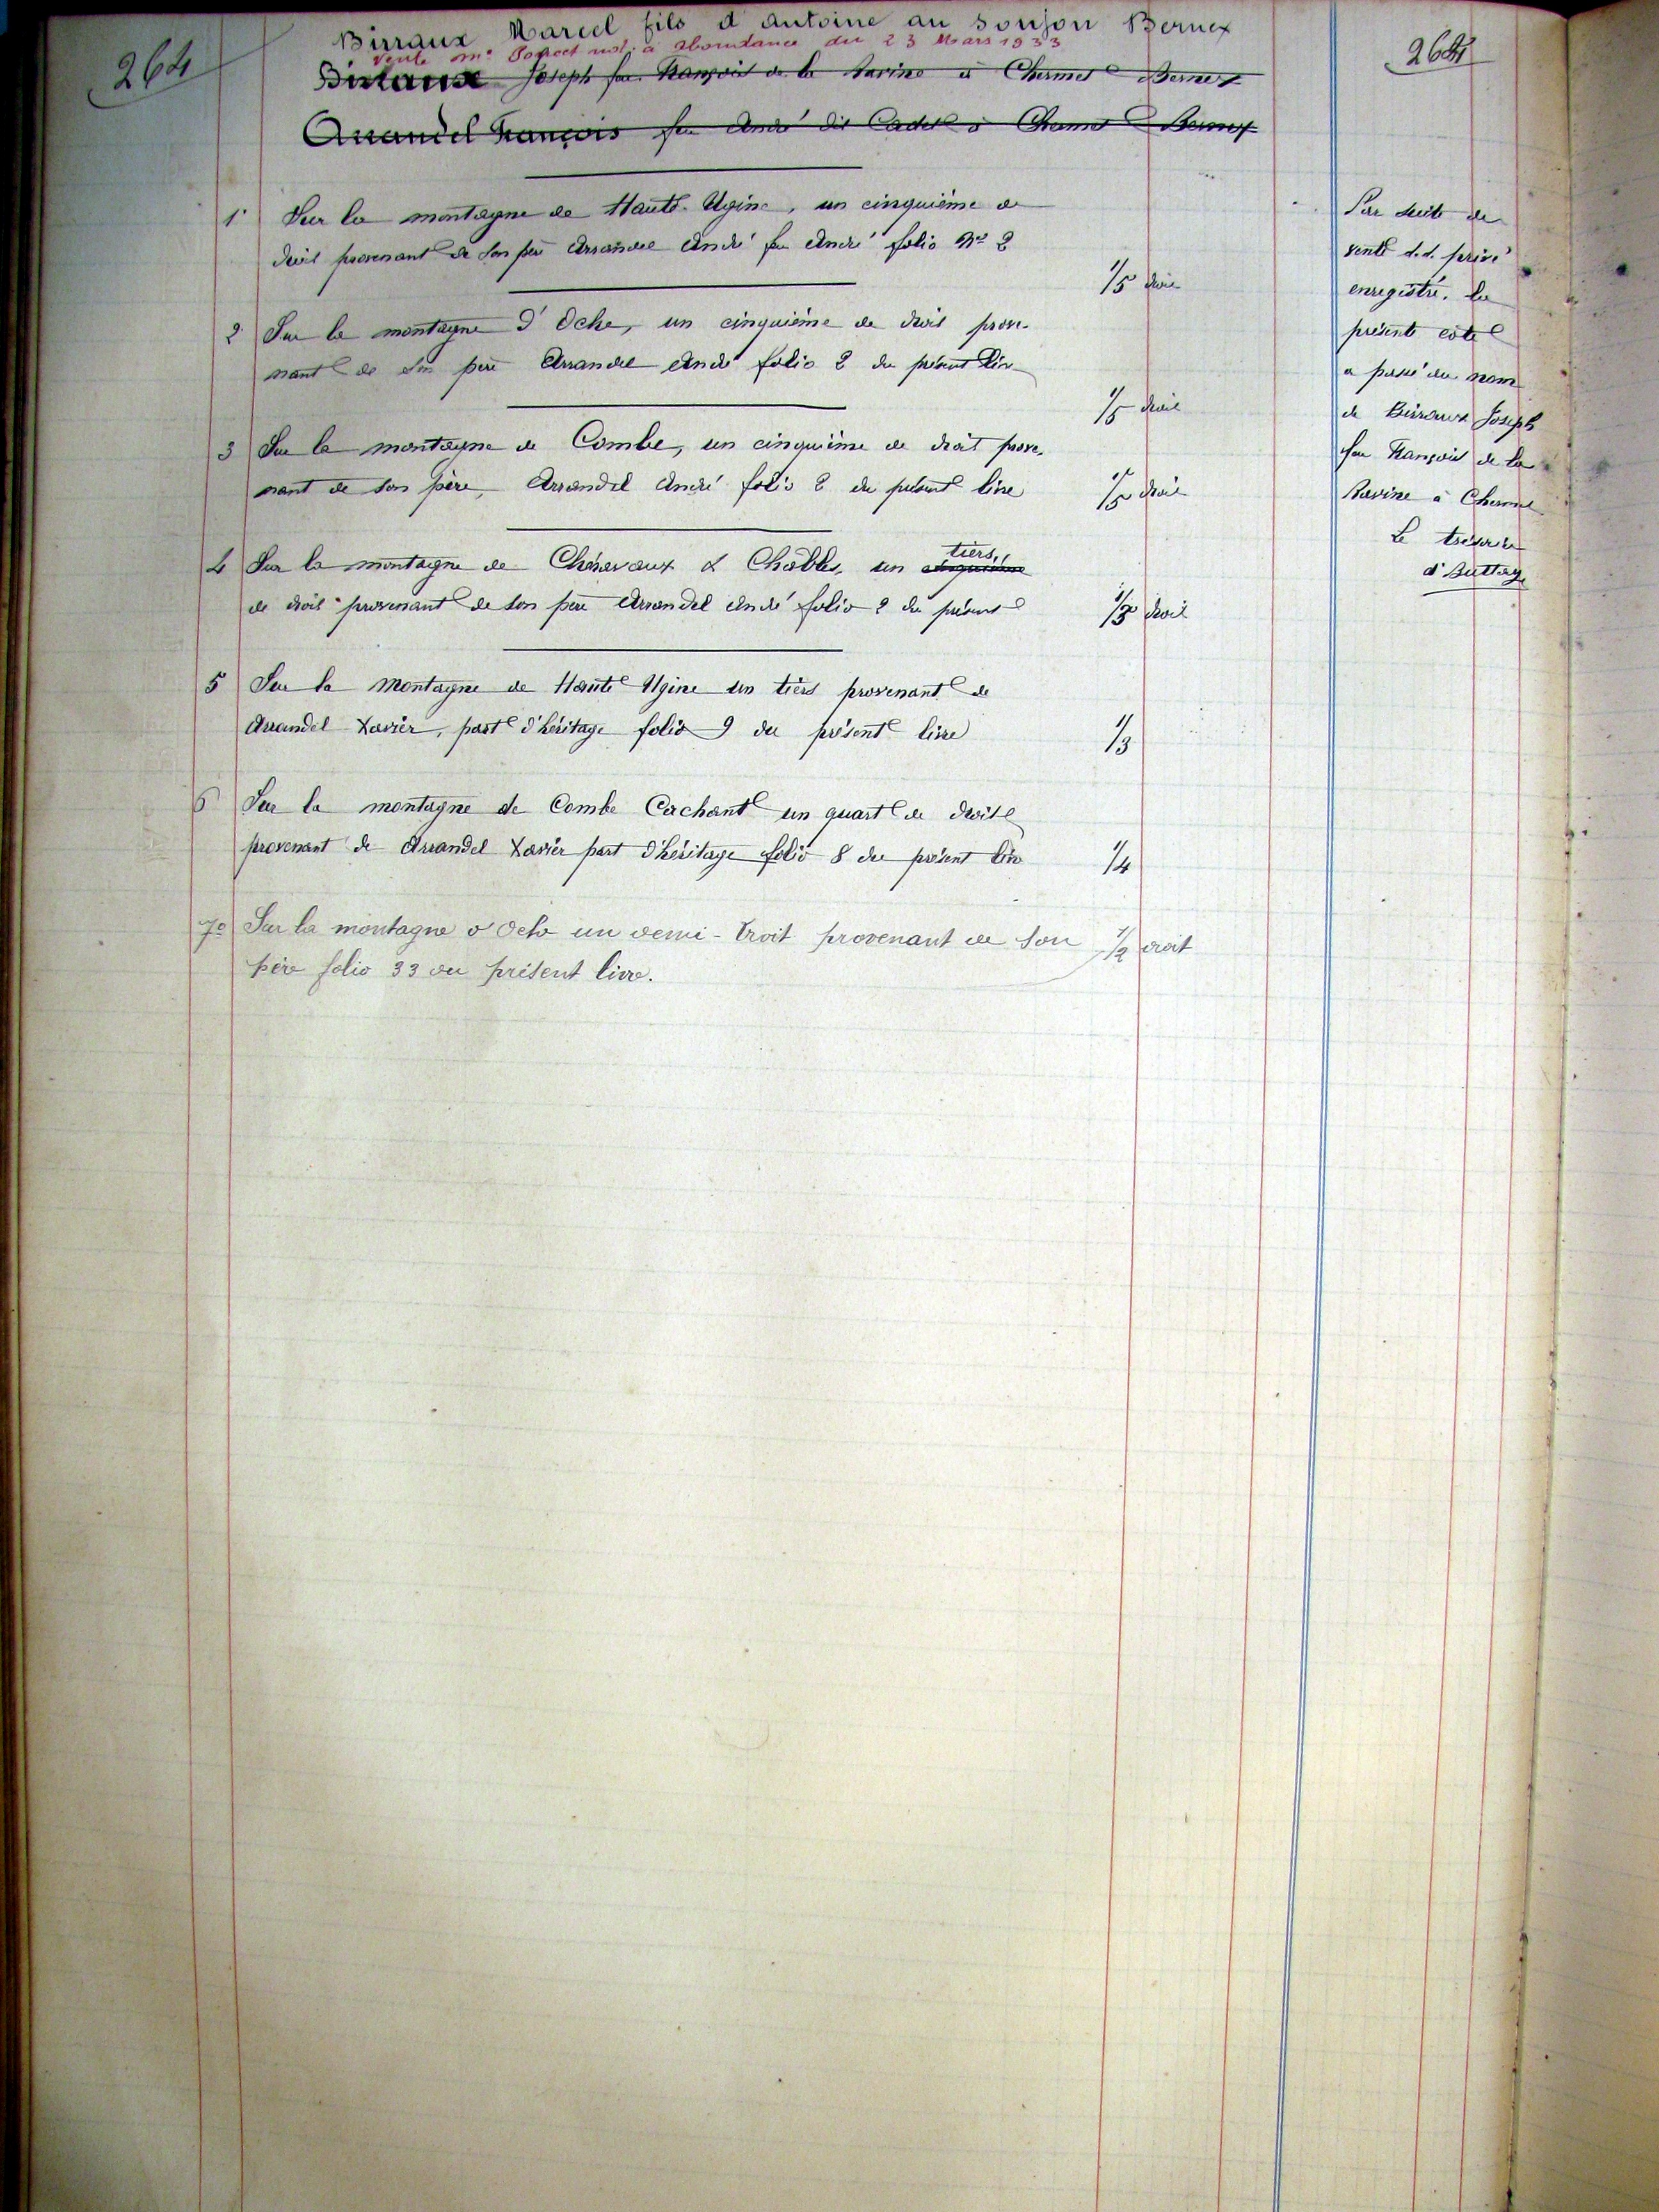 264
264
Birraux Marcel fils d'Antoine au Soujon Bernex
Vente Me not. à Abondance du 23 Mars 1933
Birraux Joseph feu François de la Ravine à Chermet Bernex
Arrandel François feu André dit Cadet à Chermet Bernex
1° Sur la montagne de Haute-Ugine, un cinquième de
droit provenant de son père Arrandel André feu André folio No 2
1/5 droit
2 Sur la montagne d'Oche, un cinquième de droit prove-
nant de son père Arrandel André folio 2 du présent livre
1/5 droit
3 Sur la montagne de Combe, un cinquième de droit prove-
nant de son père, Arrandel André folio 2 du présent livre
1/5 droit
4 Sur la montagne de Chénavaux & Châbles, un cinquième tiers,
de droit provenant de son père Arrandel André folio 2 du présent
1/3 droit
5 Sur la Montagne de Haute Ugine un tiers provenant de
Arrandel Xavier, part d'héritage folio 9 du présent livre
1/3
6 Sur la montagne de Combe Cachant un quart de droit
provenant de Arrandel Xavier part d'héritage folio 8 du présent livre
1/4
7° Sur la montagne d'Oche un demi-droit provenant de son
père folio 33 du présent livre.
1/2 droit
Par suite de
vente s.s. privé
enregistré, la
présente côte
a passé au nom
de Birraux Joseph
feu François de la
Ravine à Chermet
Le trésorier